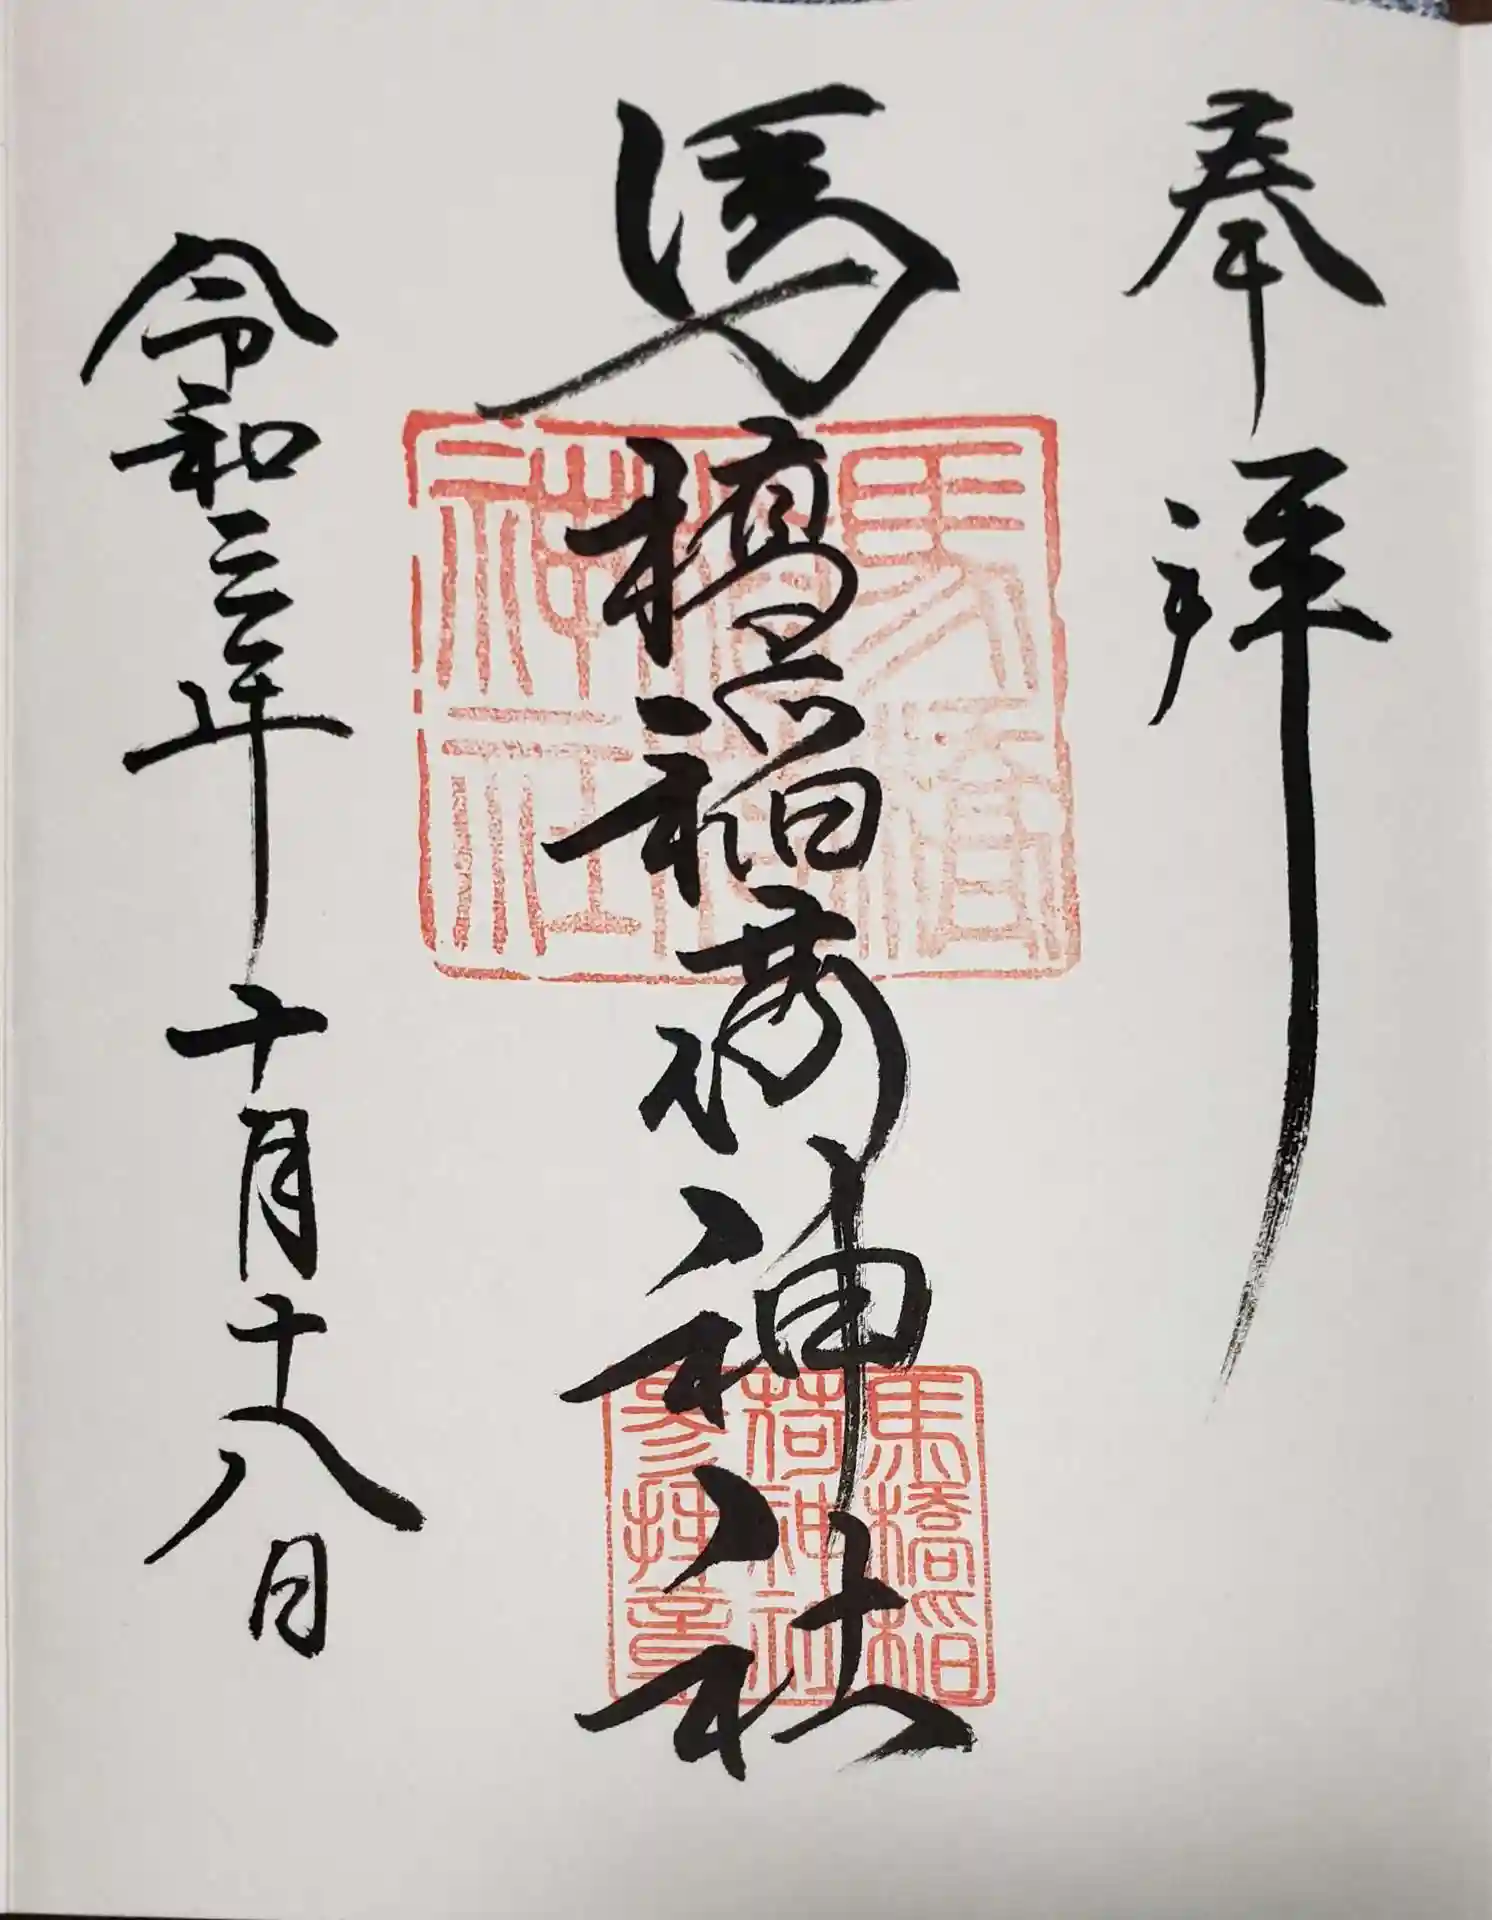 奉拝
馬橋稲荷神社
令和三年十月十八日
馬橋
稲荷
神社
馬橋稲
荷神社